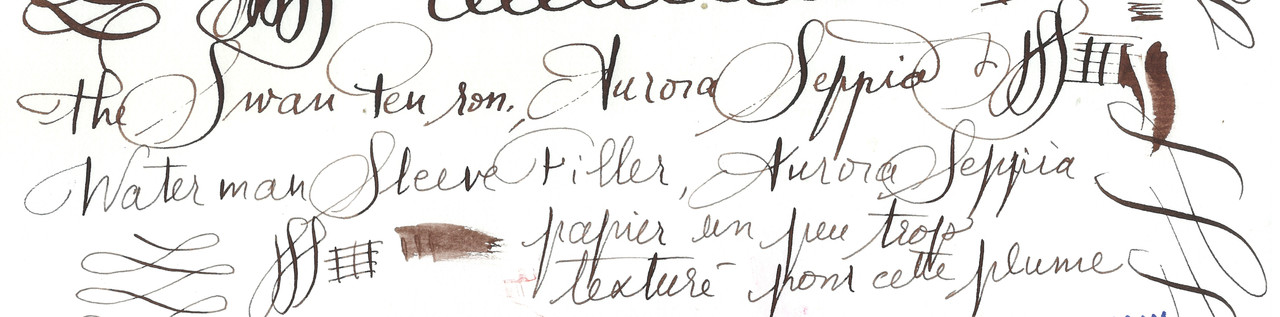 the Swan Pen son, Aurora Seppia
Waterman Sleeve Filler, Aurora Seppia
papier un peu trop
texturé pour cette plume